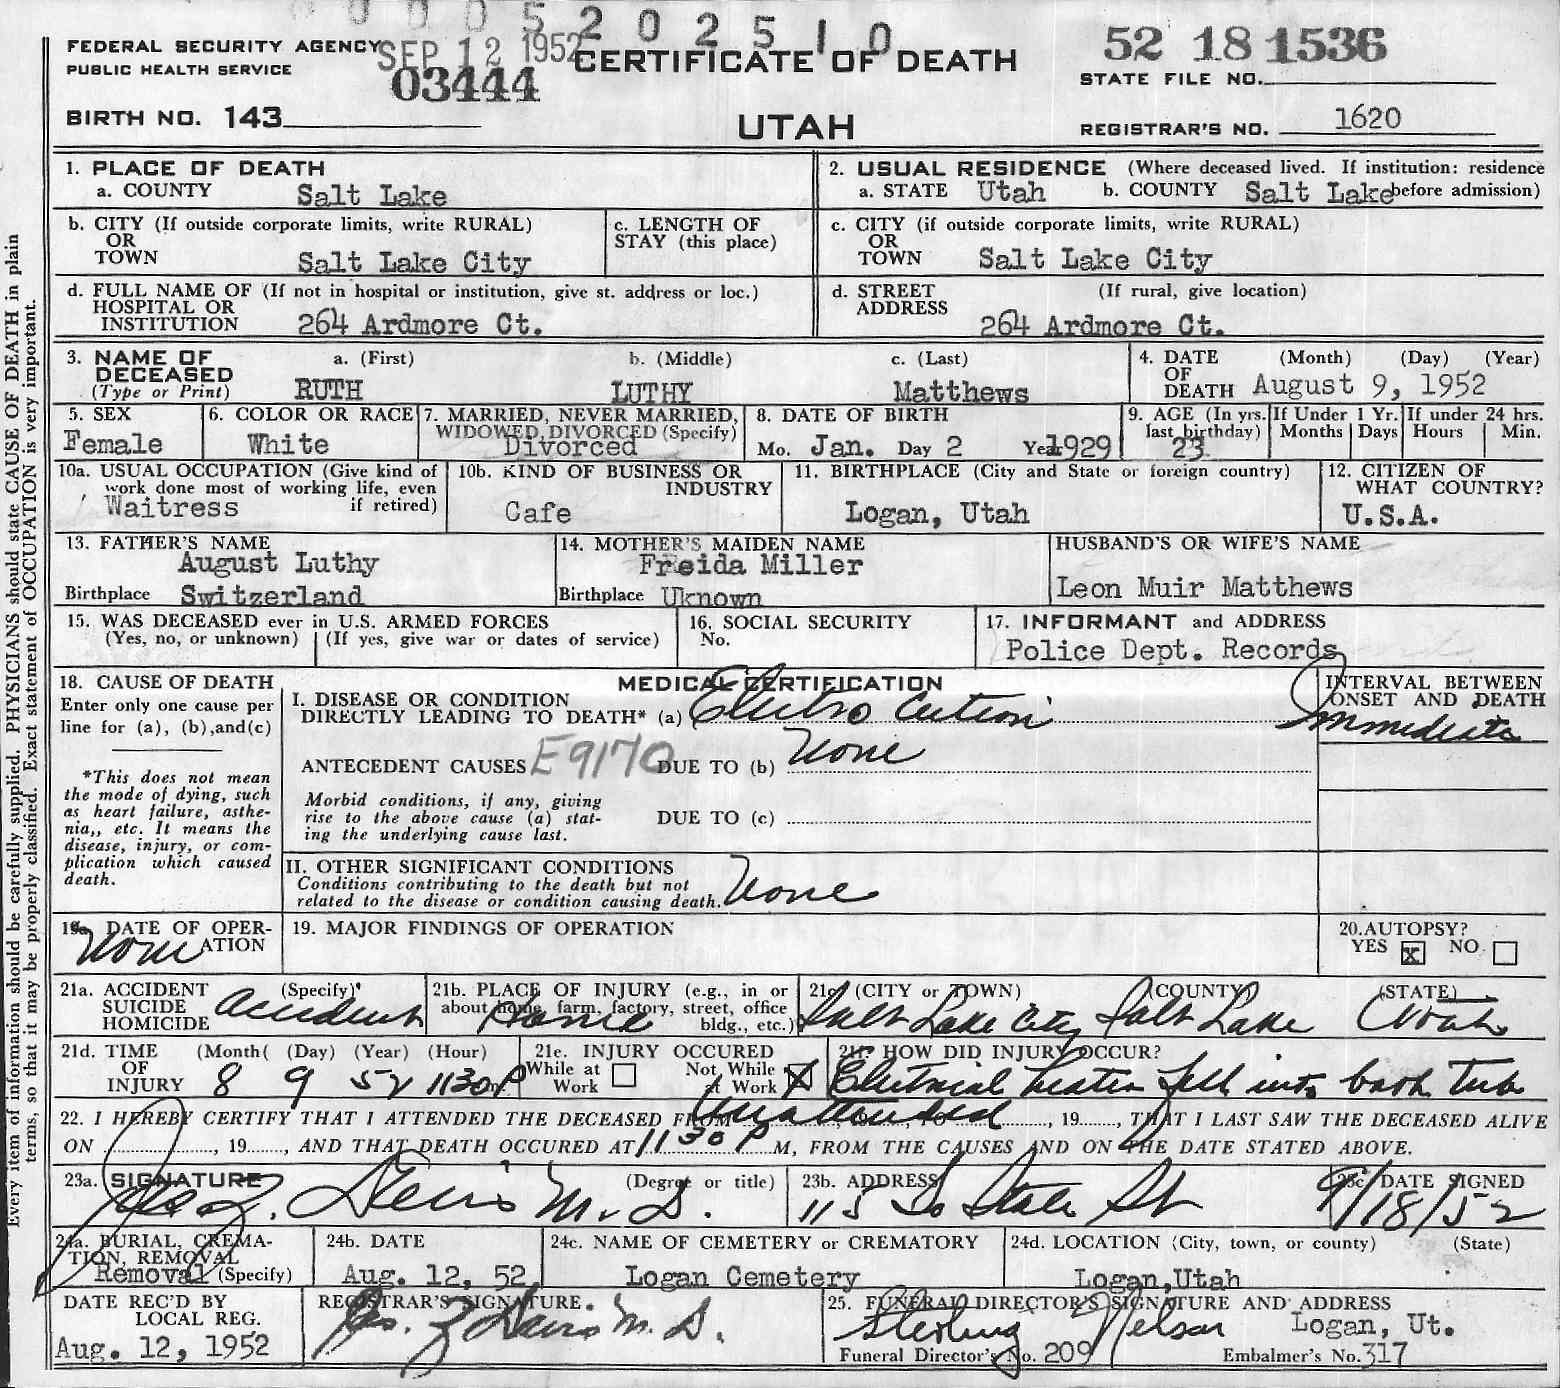 0 0 0 5 2 0 2 5 1 0
FEDERAL SECURITY AGENCY
PUBLIC HEALTH SERVICE
SEP 12 1952
03444
CERTIFICATE OF DEATH
52 18 1536
STATE FILE NO.
BIRTH NO. 143
UTAH
REGISTRAR'S NO. 1620
1. PLACE OF DEATH
a. COUNTY Salt Lake
2. USUAL RESIDENCE (Where deceased lived. If institution: residence before admission)
a. STATE Utah b. COUNTY Salt Lake
b. CITY (If outside corporate limits, write RURAL)
OR
TOWN Salt Lake City
c. LENGTH OF
STAY (this place)
c. CITY (if outside corporate limits, write RURAL)
OR
TOWN Salt Lake City
d. FULL NAME OF (If not in hospital or institution, give st. address or loc.)
HOSPITAL OR
INSTITUTION 264 Ardmore Ct.
d. STREET (If rural, give location)
ADDRESS 264 Ardmore Ct.
3. NAME OF
DECEASED
(Type or Print)
a. (First) b. (Middle) c. (Last)
RUTH LUTHY Matthews
4. DATE (Month) (Day) (Year)
OF
DEATH August 9, 1952
5. SEX
Female
6. COLOR OR RACE
White
7. MARRIED, NEVER MARRIED,
WIDOWED, DIVORCED (Specify)
Divorced
8. DATE OF BIRTH
Mo. Jan. Day 2 Year 1929
9. AGE (In yrs.
last birthday)
23
If Under 1 Yr.
Months Days
If under 24 hrs.
Hours Min.
10a. USUAL OCCUPATION (Give kind of
work done most of working life, even
if retired)
Waitress
10b. KIND OF BUSINESS OR
INDUSTRY
Cafe
11. BIRTHPLACE (City and State or foreign country)
Logan, Utah
12. CITIZEN OF
WHAT COUNTRY?
U.S.A.
13. FATHER'S NAME
August Luthy
Birthplace Switzerland
14. MOTHER'S MAIDEN NAME
Freida Miller
Birthplace Uknown
HUSBAND'S OR WIFE'S NAME
Leon Muir Matthews
15. WAS DECEASED ever in U.S. ARMED FORCES
(Yes, no, or unknown) (If yes, give war or dates of service)
16. SOCIAL SECURITY
No.
17. INFORMANT and ADDRESS
Police Dept. Records
18. CAUSE OF DEATH
Enter only one cause per
line for (a), (b),and(c)
*This does not mean
the mode of dying, such
as heart failure, asthe-
nia,, etc. It means the
disease, injury, or com-
plication which caused
death.
MEDICAL CERTIFICATION
I. DISEASE OR CONDITION
DIRECTLY LEADING TO DEATH* (a) Electro Cution
INTERVAL BETWEEN
ONSET AND DEATH
Immediate
ANTECEDENT CAUSES E9170 DUE TO (b) None
Morbid conditions, if any, giving
rise to the above cause (a) stat-
ing the underlying cause last.
DUE TO (c)
II. OTHER SIGNIFICANT CONDITIONS
Conditions contributing to the death but not
related to the disease or condition causing death. None
19a. DATE OF OPER-
ATION
None
19. MAJOR FINDINGS OF OPERATION
20. AUTOPSY?
YES x NO
21a. ACCIDENT (Specify)
SUICIDE
HOMICIDE
accident
21b. PLACE OF INJURY (e.g., in or
about home, farm, factory, street, office
bldg., etc.)
Home
21c. (CITY or TOWN) (COUNTY) (STATE)
Salt Lake City Salt Lake Utah
21d. TIME (Month( (Day) (Year) (Hour)
OF
INJURY 8 9 52 1130 P m
21e. INJURY OCCURED
While at Work Not While at Work X
21f. HOW DID INJURY OCCUR?
Electrical heater fell into bath tub
22. I HEREBY CERTIFY THAT I ATTENDED THE DECEASED FROM unattended, 19, TO, 19, THAT I LAST SAW THE DECEASED ALIVE
ON, 19, AND THAT DEATH OCCURED AT 11 30 P M, FROM THE CAUSES AND ON THE DATE STATED ABOVE.
23a. SIGNATURE (Degree or title)
Jas. Z. Davis M. D.
23b. ADDRESS
115 So State St
23c. DATE SIGNED
9/18/52
24a. BURIAL, CREMA-
TION, REMOVAL
Removal (Specify)
24b. DATE
Aug. 12, 52
24c. NAME OF CEMETERY OR CREMATORY
Logan Cemetery
24d. LOCATION (City, town, or county) (State)
Logan, Utah
DATE REC'D BY
LOCAL REG.
Aug. 12, 1952
REGISTRAR'S SIGNATURE.
Jas. Z Davis M. D.
25. FUNERAL DIRECTOR'S SIGNATURE AND ADDRESS
Sterling Nelson Logan, Ut.
Funeral Director's No. 209 Embalmer's No. 317
Every item of information should be carefully supplied. PHYSICIANS should state CAUSE OF DEATH in plain
terms, so that it may be properly classified. Exact statement of OCCUPATION is very important.